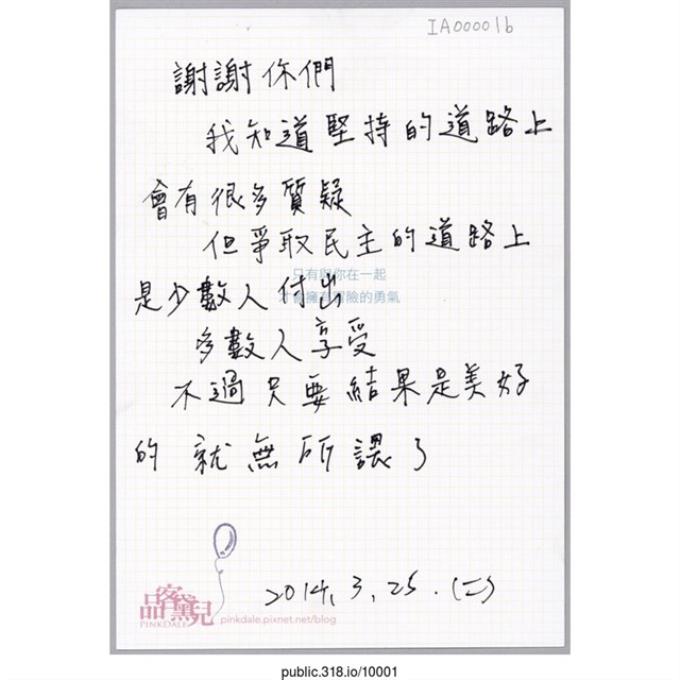 IA000016
謝謝你們
我知道堅持的道路上
會有很多質疑
但爭取民主的道路上
只有與你在一起
是少數人付出
才會擁有冒險的勇氣
多數人享受
不過只要結果是美好
的就無所謂了
2014.3.25.(二)
品客黛兒
PINKDALE
pinkdale.pixnet.net/blog
public.318.io/10001